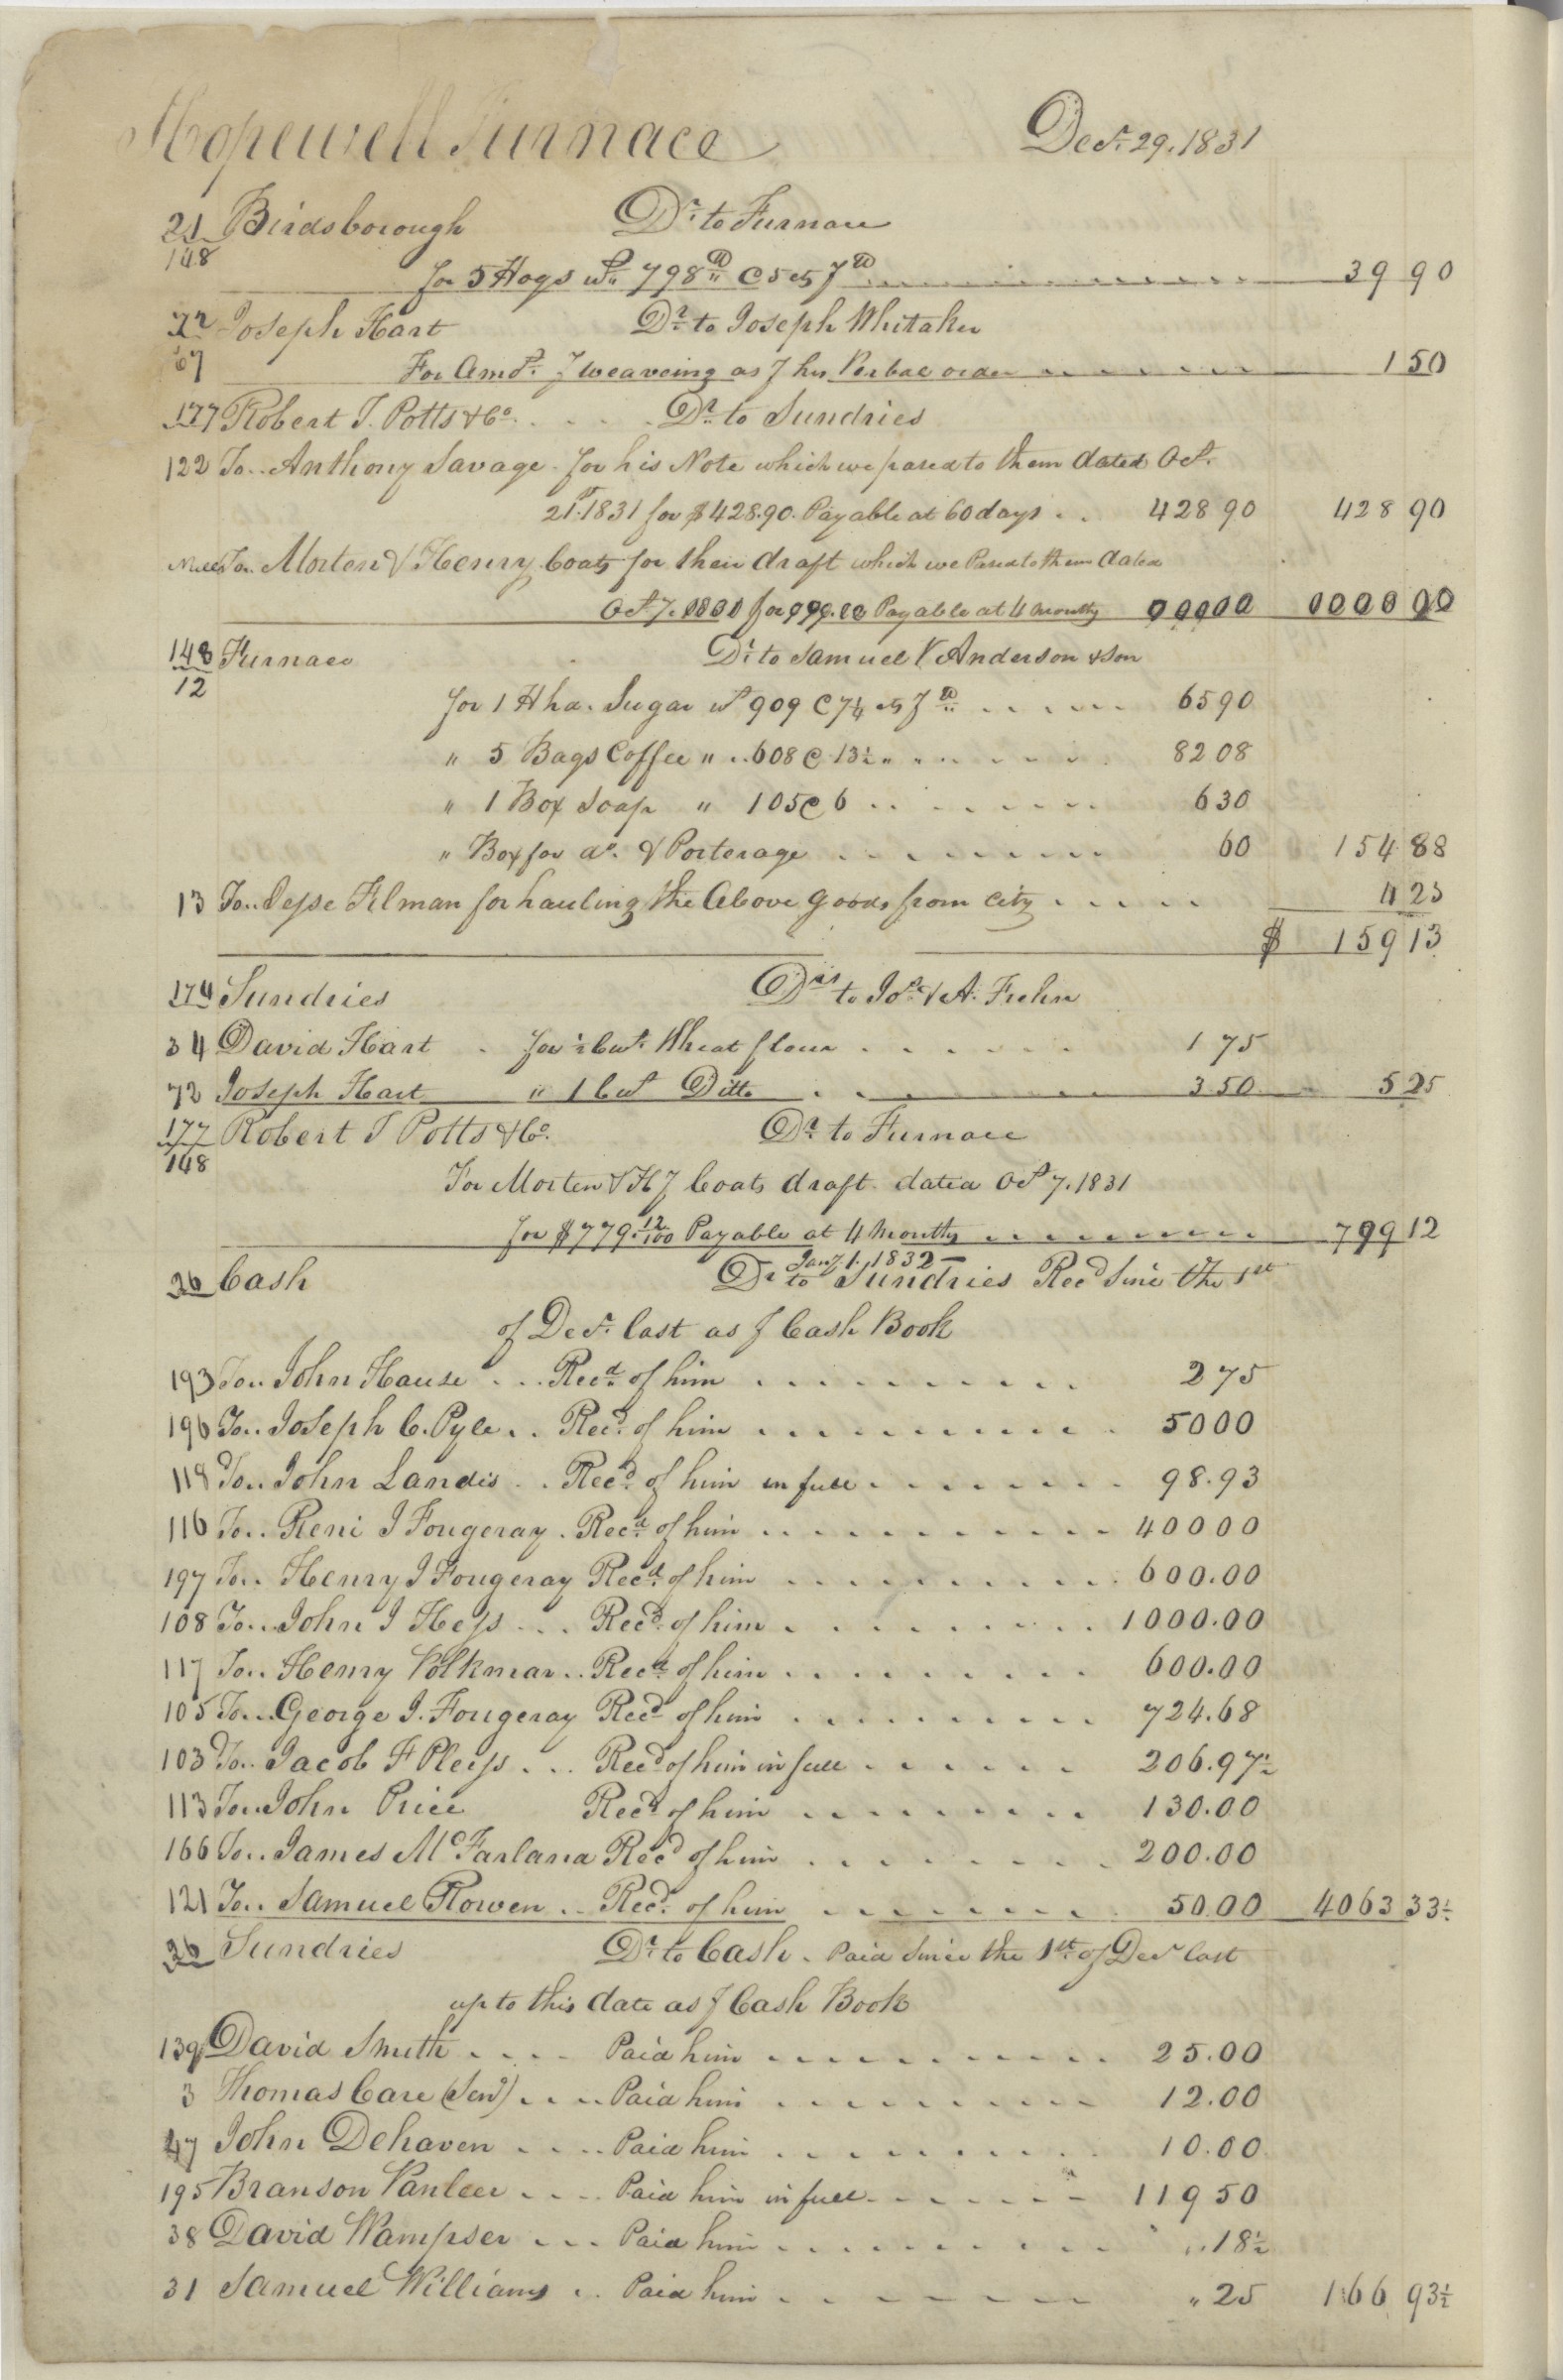 Hopewell Furnace Decr. 29. 1831
21 Birdsborough Dr. to Furnace
148
for 5 Hogs wt. 798 lb @ 5 cts lb 39 90
72 Joseph Hart Dr. to Joseph Whitaker
67
For Amot. weaveing as his Verbal order 1 50
177 Robert T. Potts & Co. Dr. to Sundries
122 To Anthony Savage for his Note which we passed to them dated Oct.
21st 1831 for $428.90. Payable at 60 days 428 90 428 90
To Morten & Henry Coats for their draft which we Passed to them dated
Oct. 7. Payable at 4 months
148 Furnace Dr. to Samuel V Anderson & Son
12
for 1 Hhd. Sugar wt 909 @ 7 1/4 cts lb 65 90
" 5 Bags Coffee " 608 @ 13 1/2 " 82 08
" 1 Box Soap " 105 @ 6 6 30
" Box for do. & Porterage 60 154 88
13 To Jesse Filman for hauling the Above goods from City 4 25
$ 159 13
174 Sundries Drs to Jos. & A. Frehn
34 David Hart for 1/2 Cwt. Wheat flour 1 75
72 Joseph Hart " 1 Cwt Ditto 3 50 5 25
177 Robert T Potts & Co. Dr. to Furnace
148
For Morten & H J Coats draft dated Oct 7. 1831
for $779. 12/100 Payable at 4 months 779 12
Jany 1. 1832
26 Cash Dr to Sundries Recd Since the 1st
of Decr. last as Cash Book
193 To John Hause Recd. of him 2 75
196 To Joseph C. Pyle Recd. of him 50 00
119 To John Landis Recd. of him in full 98.93
116 To Reni J Fougeray Recd. of him 400 00
197 To Henry J Fougeray Recd. of him 600.00
108 To John J Hess Recd. of him 1000.00
117 To Henry Volkmar Recd. of him 600.00
105 To George J. Fougeray Recd of him 724.68
103 To Jacob F Pleiss Recd of him in full 206.97 1/2
113 To John Price Recd of him 130.00
166 To James McFarland Recd of him 200.00
121 To Samuel Rowen Recd. of him 50.00 4063 33 1/2
26 Sundries Dr. to Cash. Paid Since the 1st. of Decr last
up to this date as Cash Book
139 David Smith Paid him 25.00
3 Thomas Care (Senr) Paid him 12.00
47 John Dehaven Paid him 10.00
195 Branson Vanleer Paid him in full 119 50
38 David Wampser Paid him " 18 1/2
31 Samuel Williams Paid him " 25 166 93 1/2